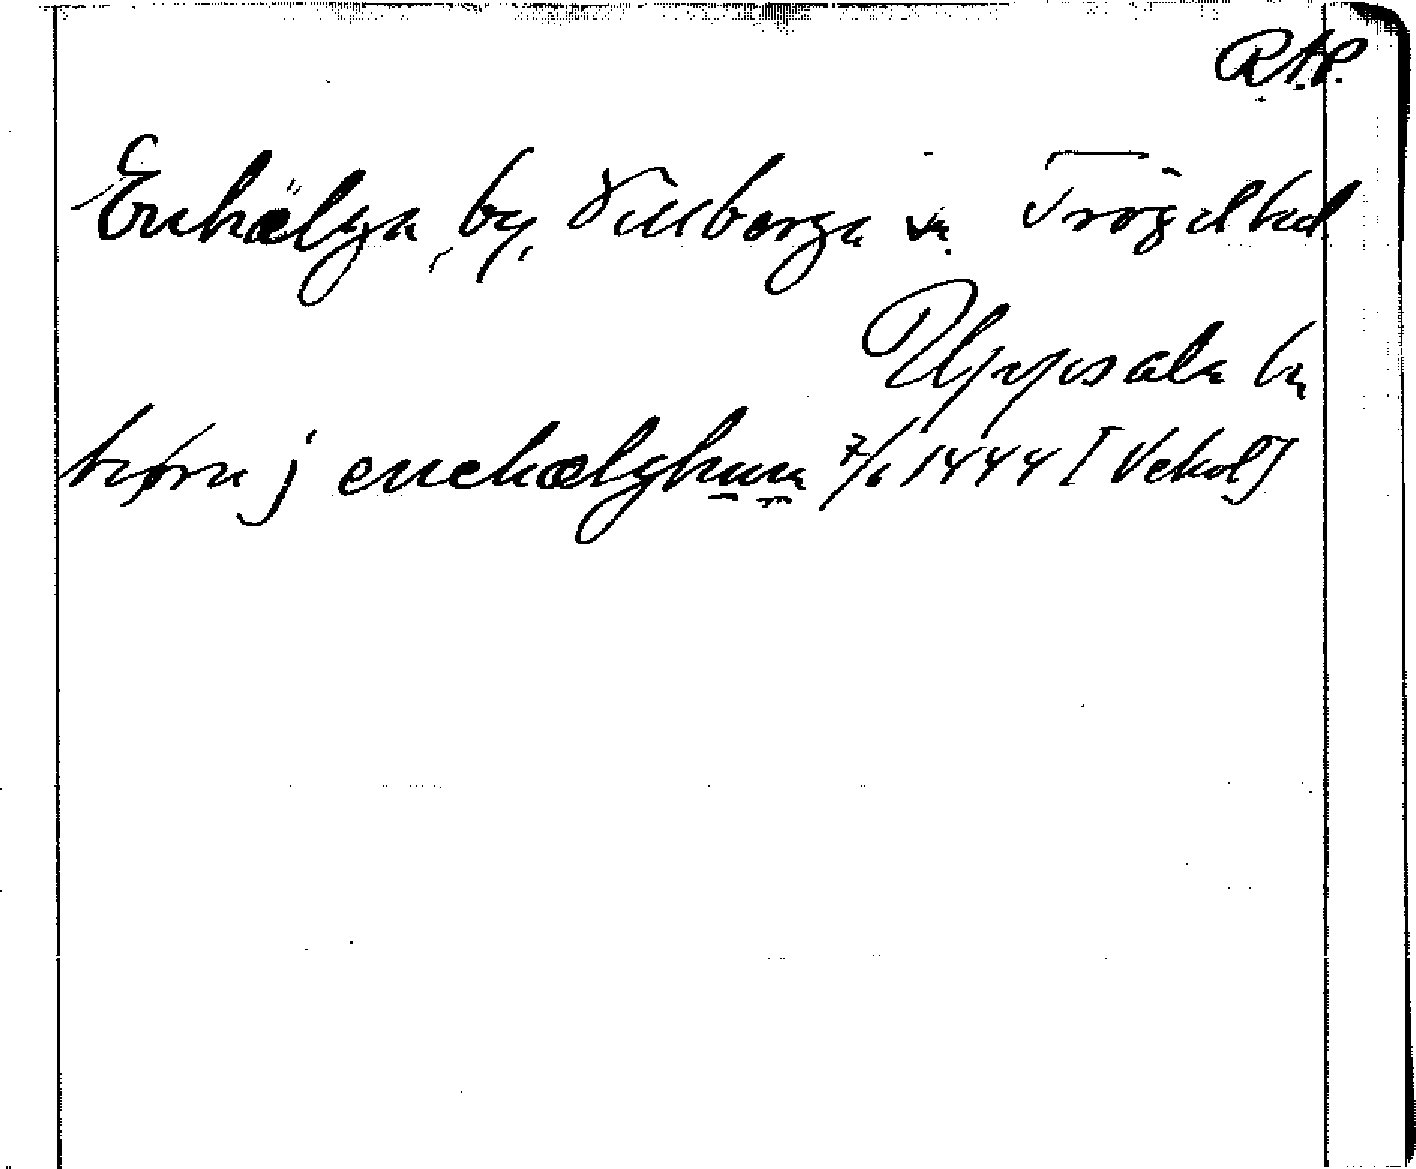 R.A.P.
Enhälga, by, Villberga sn. Trögds hd
Uppsala ln
biørn j enehælghum 7/6 1444 [Vekol]